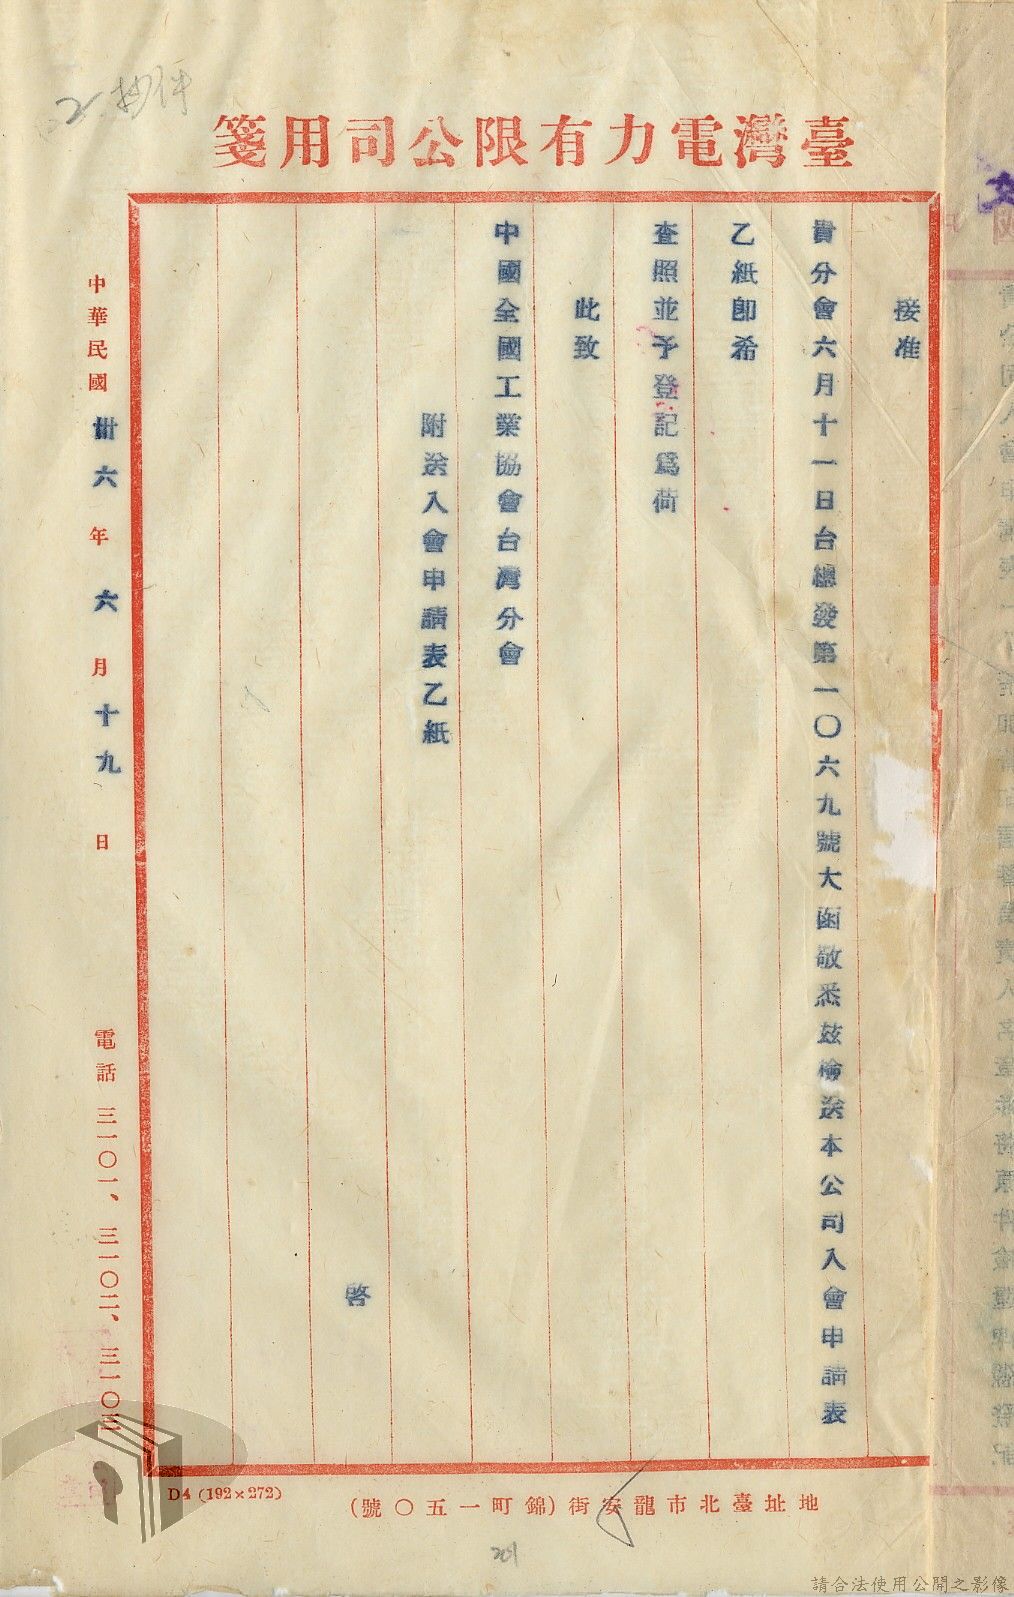 2 抄件
臺灣電力有限公司用箋
接准
貴分會六月十一日台總發第一〇六九號大函敬悉茲檢送本公司入會申請表
乙紙卽希
查照並予登記爲荷
此致
中國全國工業協會台灣分會
附送入會申請表乙紙
啓
中華民國卅六年六月十九日
電話 三一〇一、三一〇二、三一〇三
地址臺北市龍安街(錦町一五〇號)
D4 (192×272)
201
請合法使用公開之影像